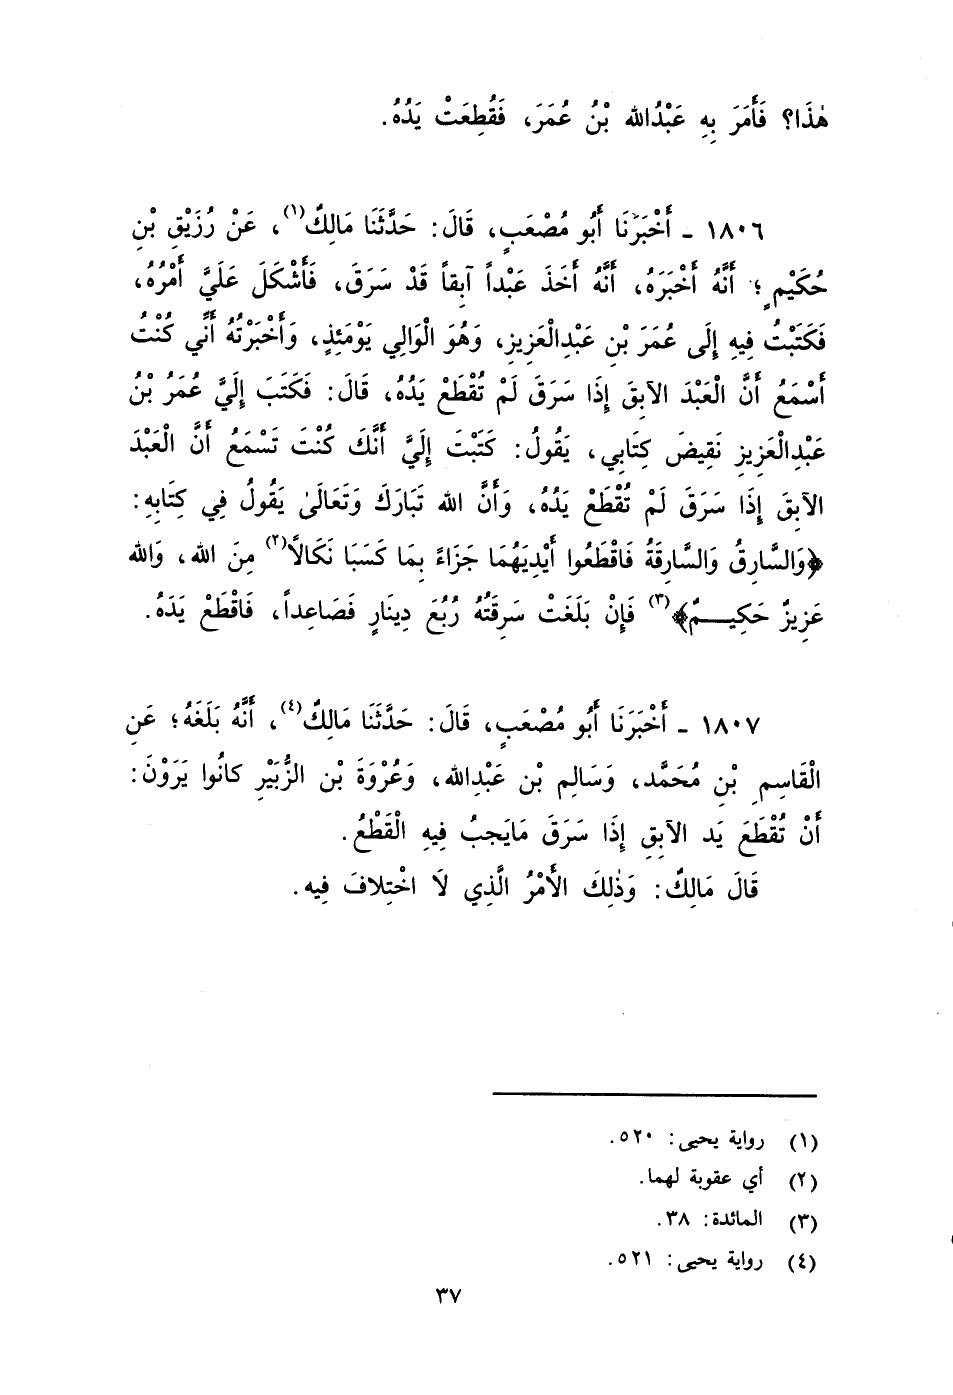 هٰذَا؟ فَأَمَرَ بِهِ عَبْدُالله بْنُ عُمَرَ، فَقُطِعَتْ يَدُهُ.
١٨٠٦ - أَخْبَرَنَا أَبُو مُصْعَبٍ، قَالَ: حَدَّثَنَا مَالِكٌ(١)، عَنْ رُزَيْقِ بْنِ
حُكَيْمٍ؛ أَنَّهُ أَخْبَرَهُ، أَنَّهُ أَخَذَ عَبْداً آبِقاً قَدْ سَرَقَ، فَأَشْكَلَ عَلَيَّ أَمْرُهُ،
فَكَتَبْتُ فِيهِ إِلَى عُمَرَ بْنِ عَبْدِالْعَزِيزِ، وَهُوَ الْوَالِي يَوْمَئِذٍ، وَأَخْبَرْتُهُ أَنِّي كُنْتُ
أَسْمَعُ أَنَّ الْعَبْدَ الآبِقَ إِذَا سَرَقَ لَمْ تُقْطَعْ يَدُهُ، قَالَ: فَكَتَبَ إِلَيَّ عُمَرُ بْنُ
عَبْدِالْعَزِيزِ نَقِيضَ كِتَابِي، يَقُولُ: كَتَبْتَ إِلَيَّ أَنَّكَ كُنْتَ تَسْمَعُ أَنَّ الْعَبْدَ
الآبِقَ إِذَا سَرَقَ لَمْ تُقْطَعْ يَدُهُ، وَأَنَّ الله تَبَارَكَ وَتَعَالَىٰ يَقُولُ فِي كِتَابِهِ:
﴿وَالسَّارِقُ وَالسَّارِقَةُ فَاقْطَعُوا أَيْدِيَهُمَا جَزَاءً بِمَا كَسَبَا نَكَالاً(٢) مِنَ الله، وَالله
عَزِيزٌ حَكِيـــمٌ﴾(٣) فَإِنْ بَلَغَتْ سَرِقَتُهُ رُبُعَ دِينَارٍ فَصَاعِداً، فَاقْطَعْ يَدَهُ.
١٨٠٧ - أَخْبَرَنَا أَبُو مُصْعَبٍ، قَالَ: حَدَّثَنَا مَالِكٌ(٤)، أَنَّهُ بَلَغَهُ؛ عَنِ
الْقَاسِمِ بْنِ مُحَمَّد، وَسَالِمِ بْنِ عَبْدِالله، وَعُرْوَةَ بْنِ الزُّبَيْرِ كانُوا يَرَوْنَ:
أَنْ تُقْطَعَ يَد الآبِقِ إِذَا سَرَقَ مَايَجبُ فِيهِ الْقَطْعُ.
قَالَ مَالِكٌ: وَذٰلِكَ الأَمْرُ الَّذِي لَا اخْتِلافَ فِيه.
(١) رواية يحيى: ٥٢٠.
(٢) أي عقوبة لهما.
(٣) المائدة: ٣٨.
(٤) رواية يحيى: ٥٢١.
٣٧